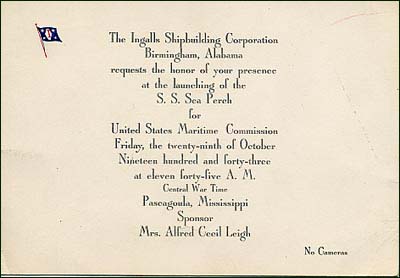 The Ingalls Shipbuilding Corporation
Birmingham, Alabama
requests the honor of your presence
at the launching of the
S. S. Sea Perch
for
United States Maritime Commission
Friday, the twenty-ninth of October
Nineteen hundred and forty-three
at eleven forty-five A. M.
Central War Time
Pascagoula, Mississippi
Sponsor
Mrs. Alfred Cecil Leigh
No Cameras